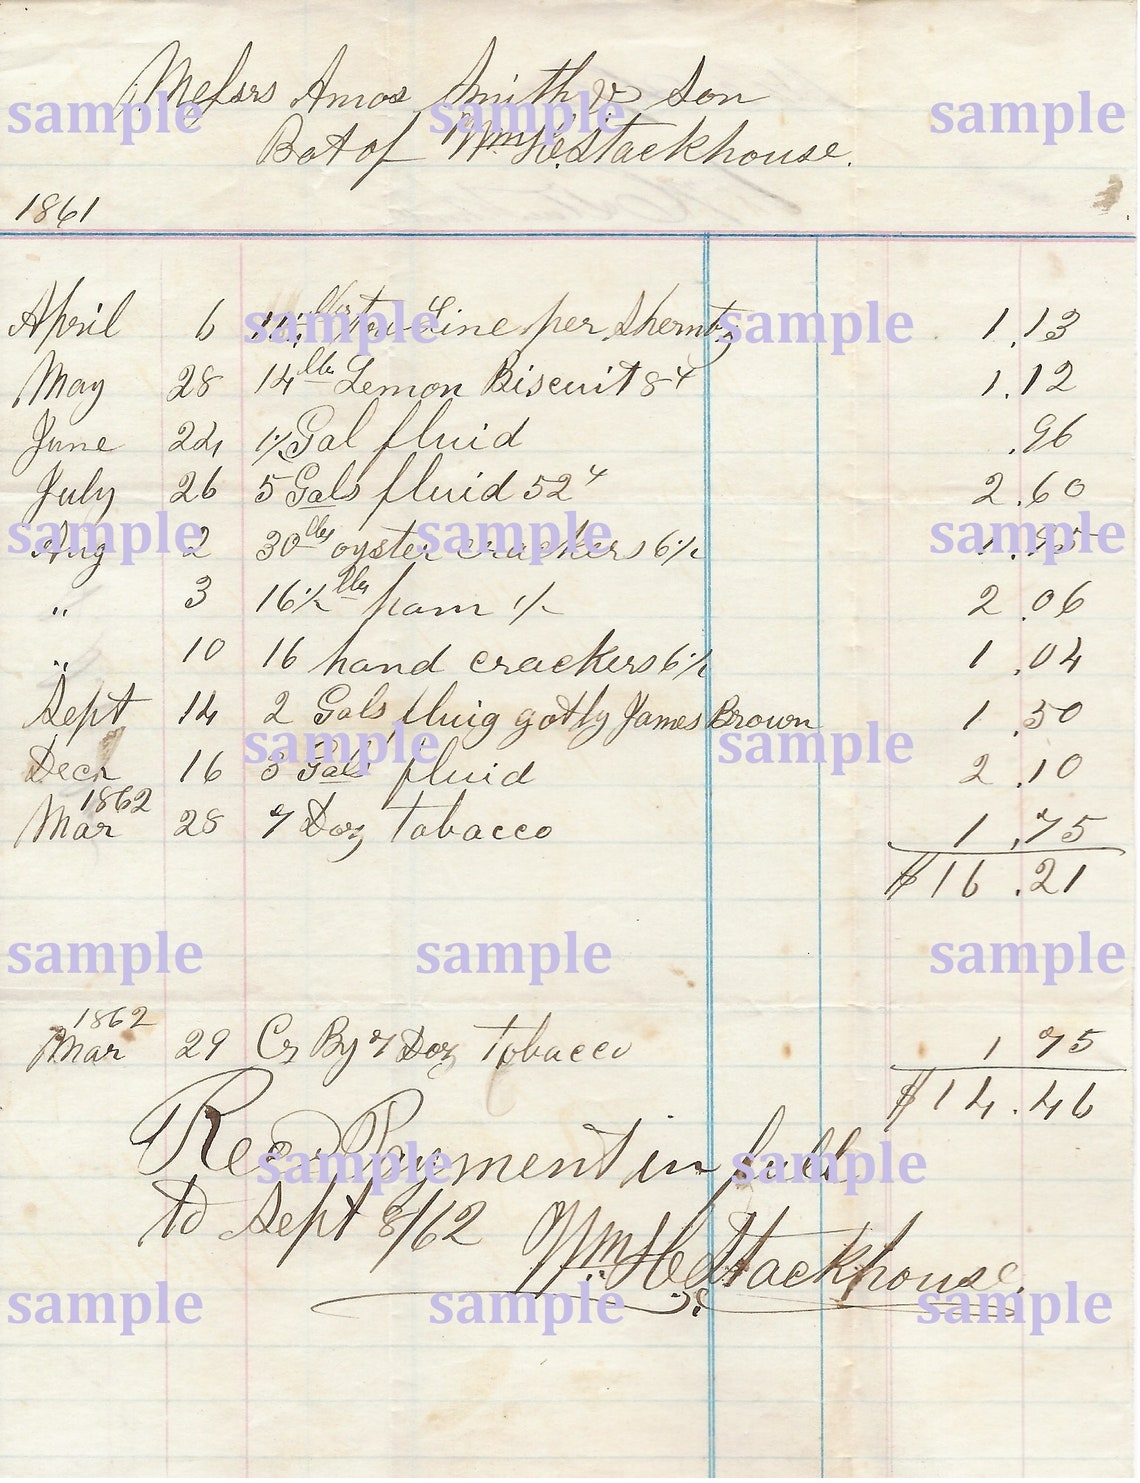 Messrs Amos Smith & Son
Bot of Wm H. Stackhouse.
1861
April 6 lbs tow Line per Sherntz 1.13
May 28 14 lbs Lemon Biscuit 8 1.12
June 24 1½ Gal fluid .96
July 26 5 Gals fluid 52 2.60
Aug 2 30 lbs oyster crackers 6½ 1.95
" 3 16½ lbs ham 2.06
" 10 16 hand crackers 6½ 1.04
Sept 14 2 Gals fluig got by James Brown 1.50
Decr 16 3 Gals fluid 2.10
1862
Mar 28 7 Doz tobacco 1.75
$16.21
1862
Mar 29 Cr By 7 Doz Tobacco 1 75
$14.46
Recd Payment in full
to Sept 8/62 Wm H. Stackhouse.
sample sample sample
sample sample
sample sample sample
sample sample
sample sample sample
sample sample
sample sample sample